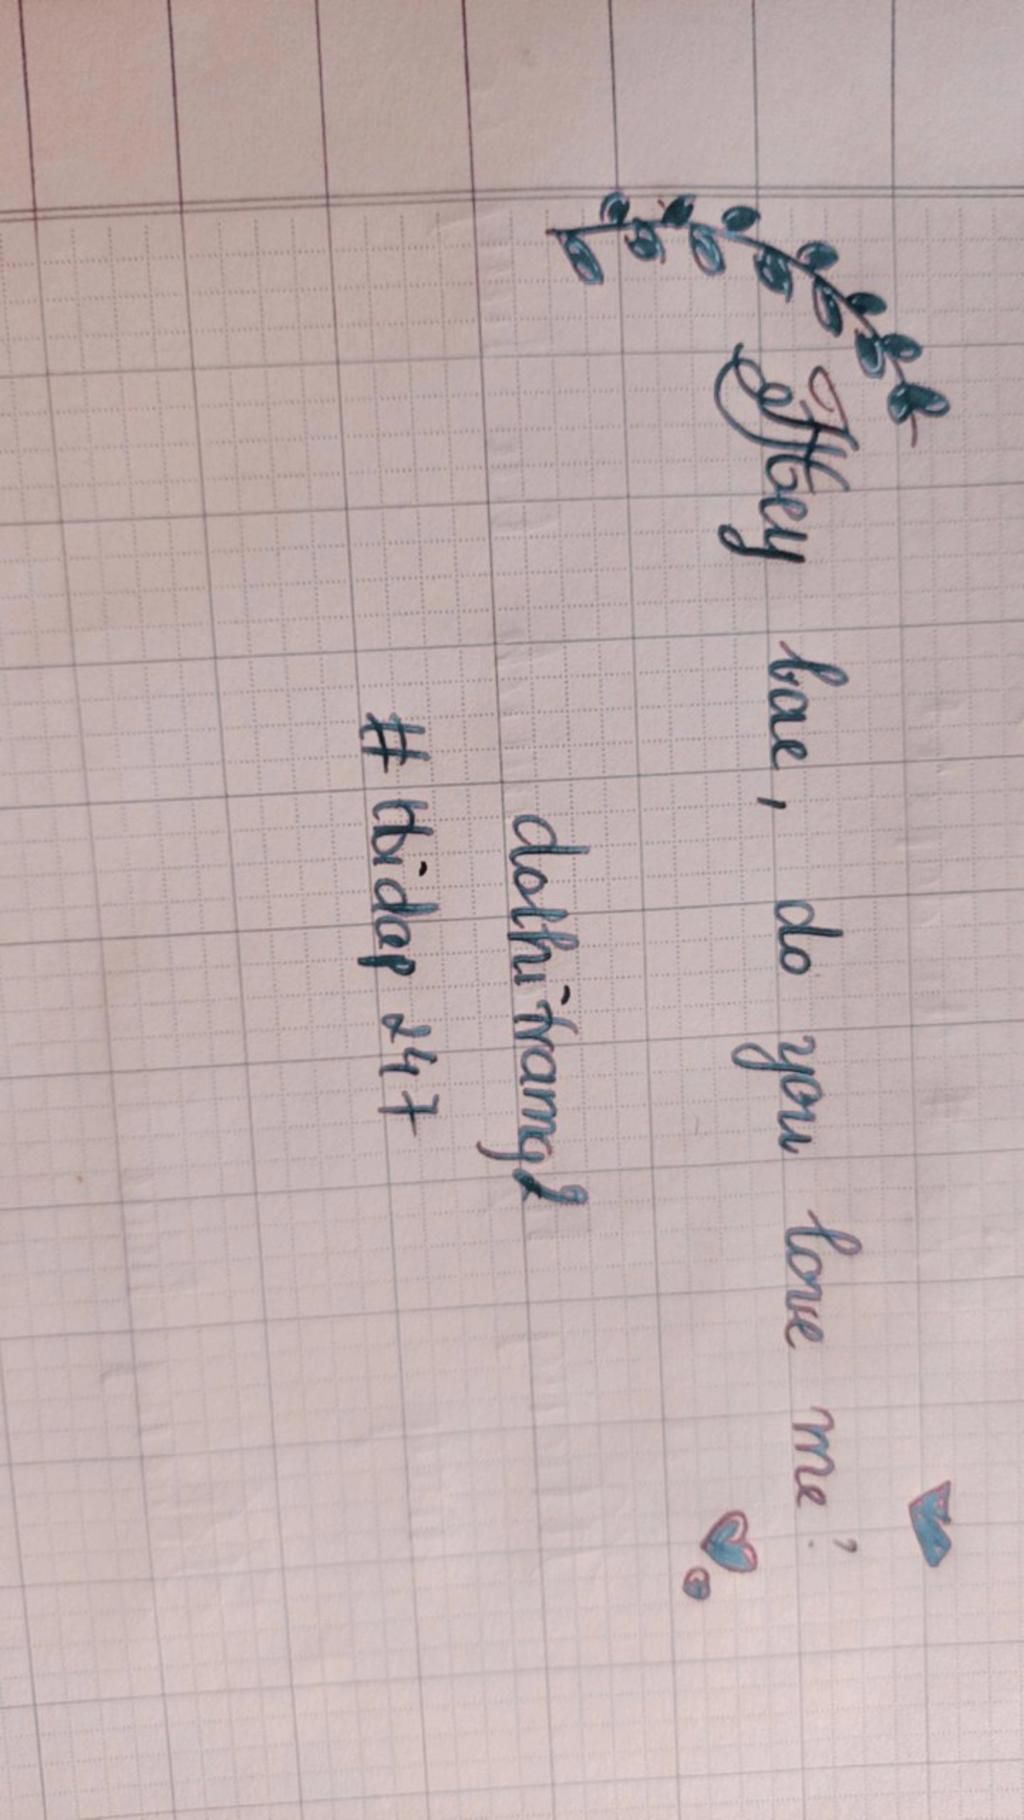 Hey bae, do you love me?
dothitrang2
#Hoidap247